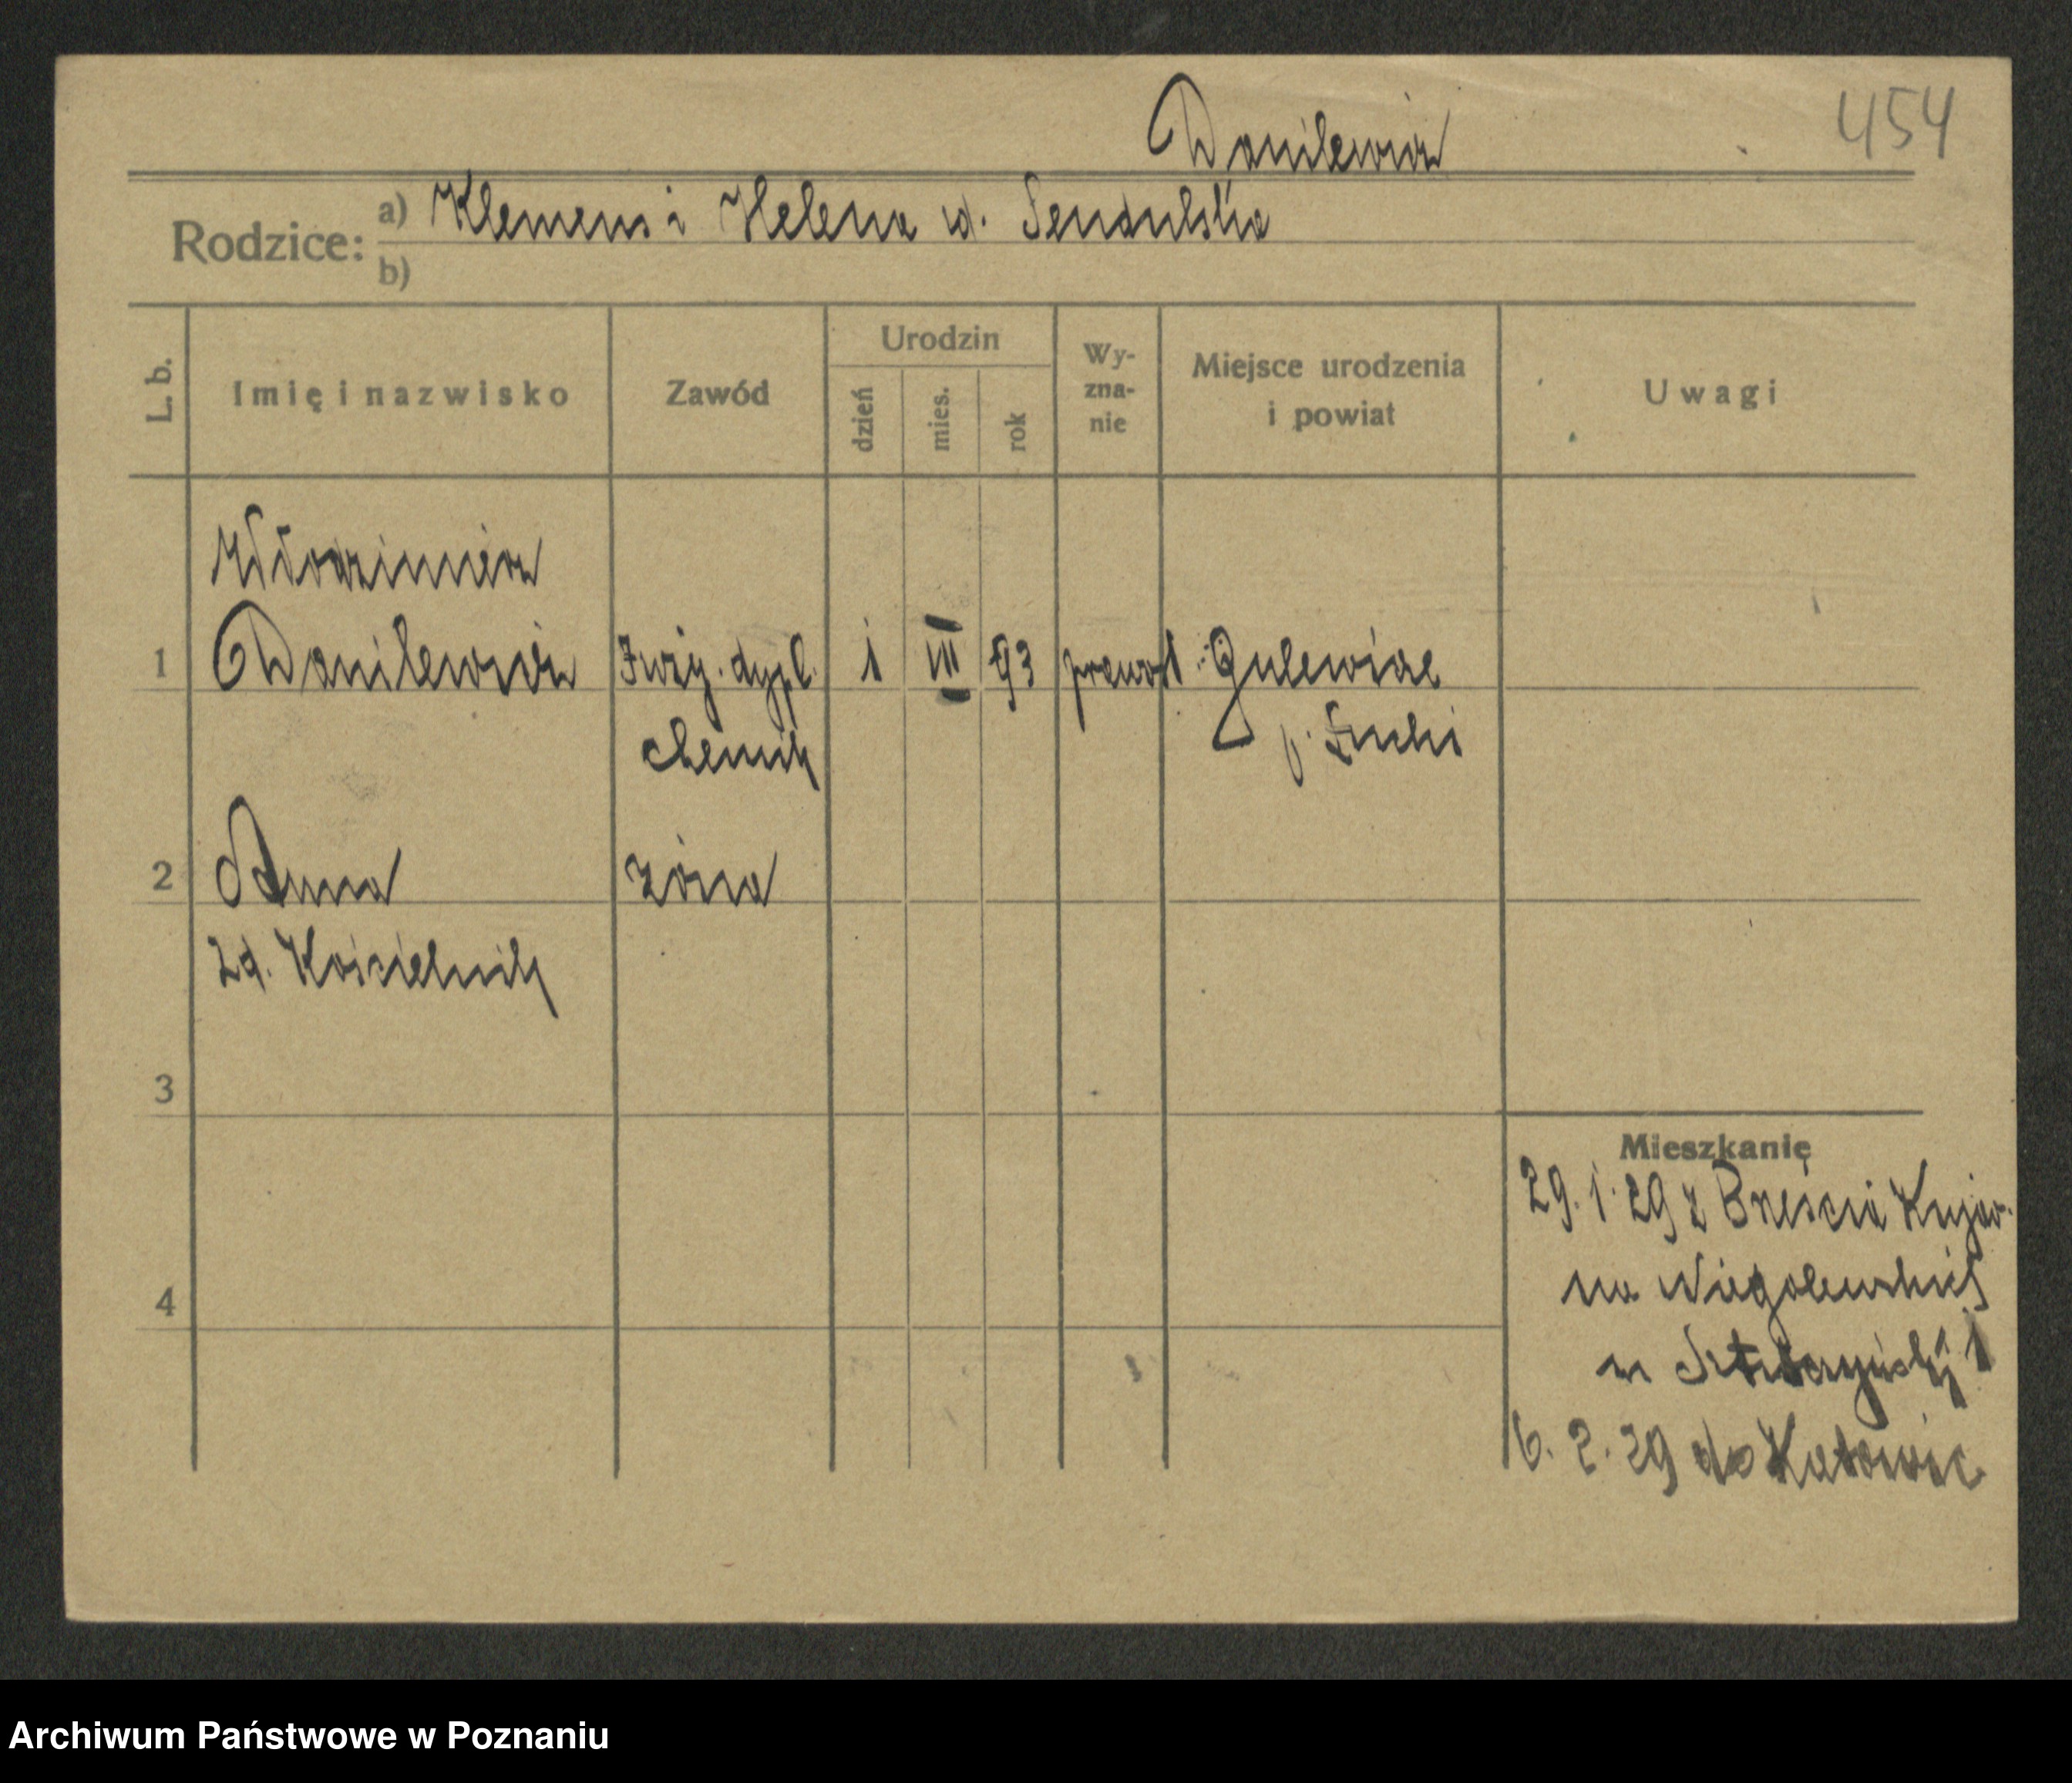 Danilewicz
454
Rodzice:
a) Klemens i Helena ud. Sendulska
b)
L. b.
Imię i nazwisko
Zawód
Urodzin
dzień
mies.
rok
Wy-
zna-
nie
Miejsce urodzenia
i powiat
Uwagi
Włodzimierz
1 Danilewicz Inży. dypl. 1 III 93 prawosł. Gulewicze
chemik p. Łucki
2 Anna żona
zd. Kościelnik
3
Mieszkanię
29. 1. 29 z Brześcia Kujaw.
na Niegolewskich
4
6. 2. 29 do Katowic
Archiwum Państwowe w Poznaniu